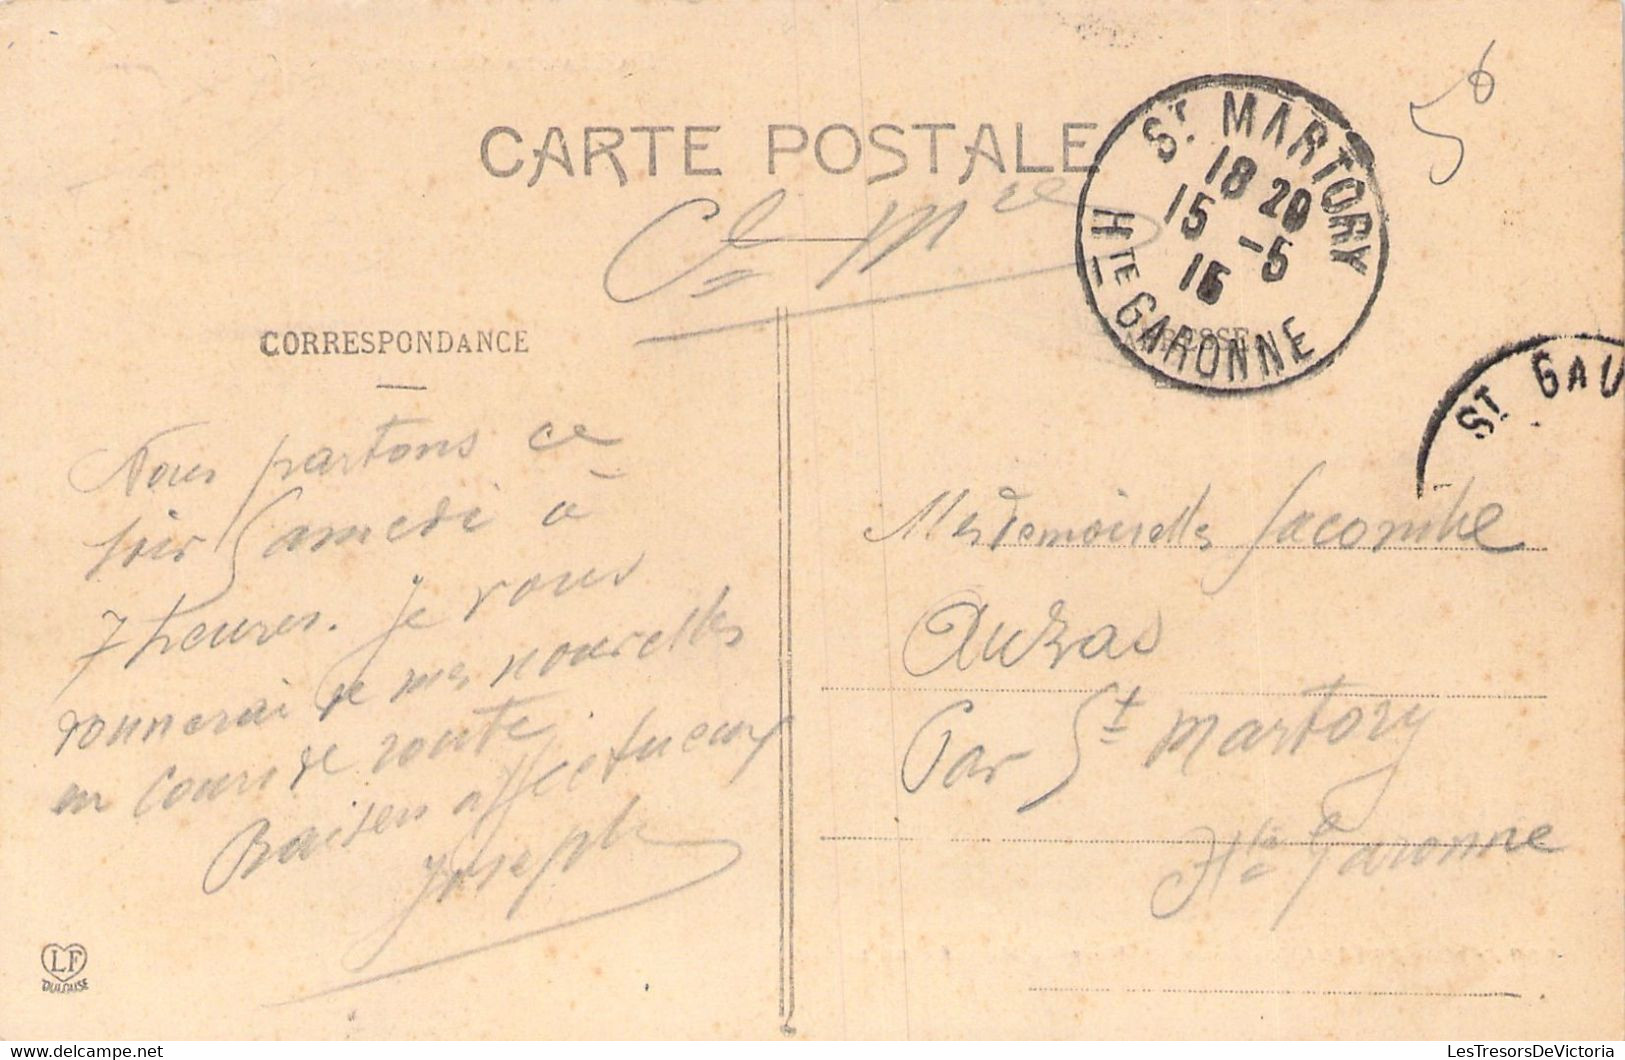 CARTE POSTALE
5⁶
Cte Mre
ST MARTORY
18 20
15 -5
15
HTE GARONNE
CORRESPONDANCE
ST GAU
Nous partons ce
soir Samedi à
7 heures. Je vous
donnerai de mes nouvelles
en cours de route
Baisers affectueux
Joseph
Mesdemoiselles Lacombe
Auzas
Par St Martory
Hte Garonne
LF
TOULOUSE
LesTresorsDeVictoria